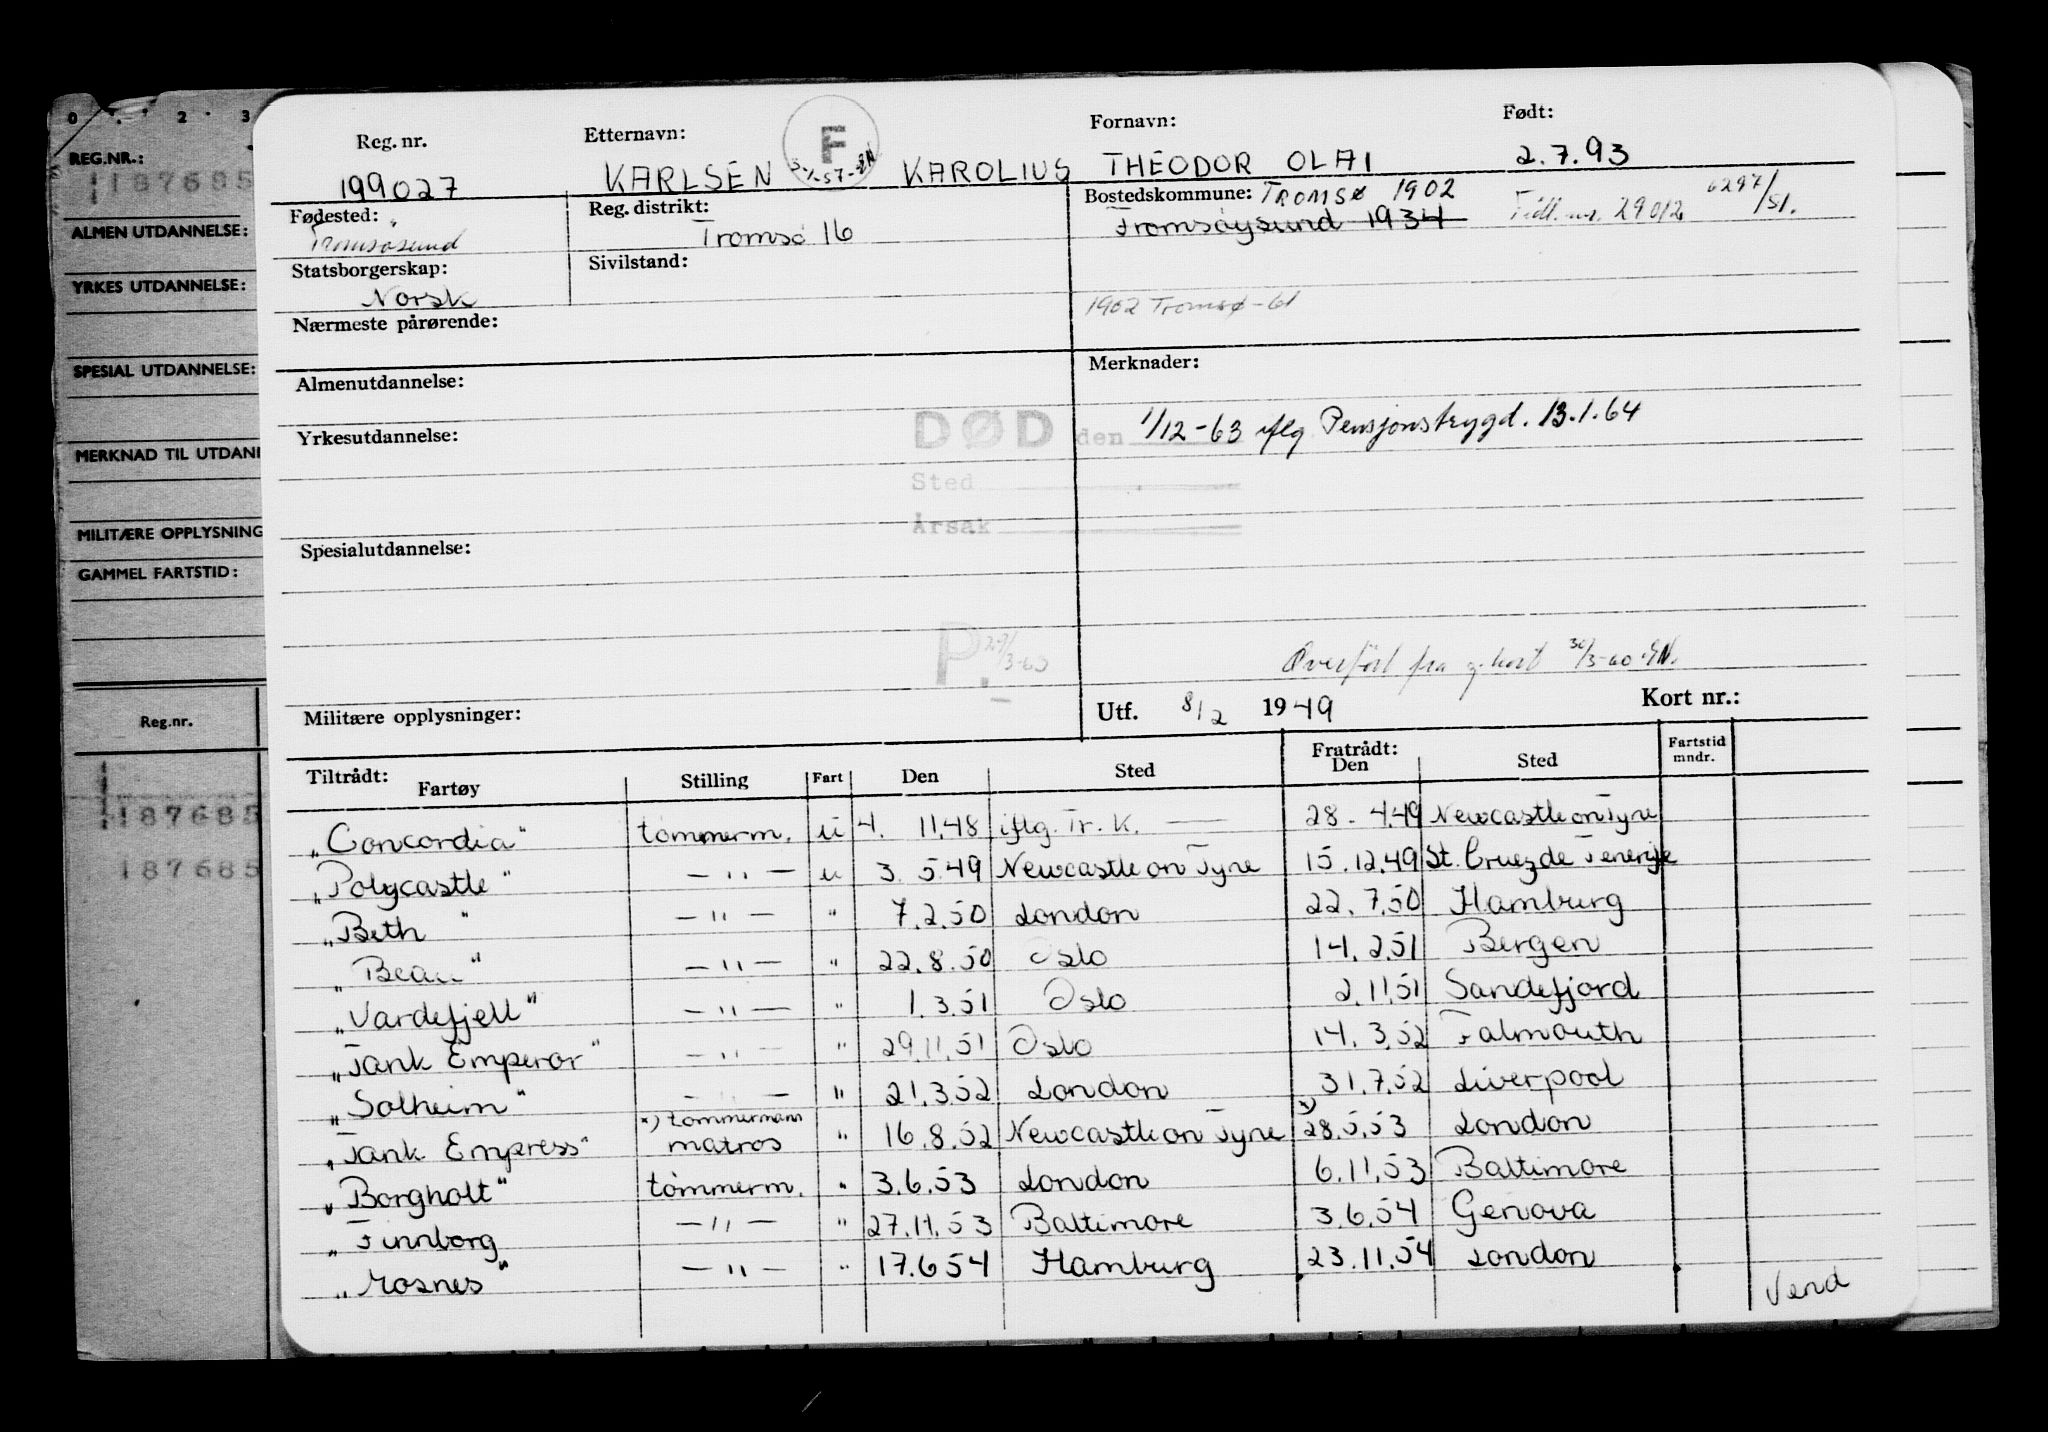 0 . 2 . 3
REG.NR.:
187685
ALMEN UTDANNELSE:
YRKES UTDANNELSE:
SPESIAL UTDANNELSE:
MERKNAD TIL UTDAN
MILITÆRE OPPLYSNING
GAMMEL FARTSTID:
Reg.nr.
187685
187685
Reg. nr. Etternavn: F Fornavn: Født:
199027 KARLSEN KAROLIUS THEODOR OLAI 2.7.93
Fødested: Reg. distrikt: Bostedskommune: TROMSØ 1902
Tromsøsund Tromsø 16 Tromsøysund 1934 Fidl. nr. 29012 6297/51.
Statsborgerskap: Sivilstand:
Norsk 1902 Tromsø-61
Nærmeste pårørende:
Almenutdannelse: Merknader:
Yrkesutdannelse: DØD den 1/12-63 iflg Pensjonstrygd. 13.1.64
Sted
Årsak
Spesialutdannelse:
P. 29/3-60 Overført fra g. kort 30/3-60 EN.
Militære opplysninger: Utf. 8/2 1949 Kort nr.:
Tiltrådt: Fartøy Stilling Fart Den Sted Fratrådt: Den Sted Fartstid mndr.
"Concordia" tømmerm. u 4. 11.48 iflg. Tr. K. — 28. 4.49 Newcastle on Tyne
"Polycastle" — " — u 3. 5.49 Newcastle on Tyne 15.12.49 St. Cruz de Tenerife
"Beth" — " — " 7.2.50 London 22.7.50 Hamburg
"Beau" — " — " 22.8.50 Oslo 14.2.51 Bergen
"Vardefjell" — " — " 1.3.51 Oslo 2.11.51 Sandefjord
"Tank Emperor" — " — " 29.11.51 Oslo 14.3.52 Falmouth
"Solheim" — " — " 21.3.52 London 31.7.52 Liverpool
"Tank Empress" x) tømmermann matros " 16.8.52 Newcastle on Tyne x) 28.5.53 London
"Borgholt" tømmerm. " 3.6.53 London 6.11.53 Baltimore
"Finnborg — " — " 27.11.53 Baltimore 3.6.54 Genova
"Rosnes" — " — " 17.6 54 Hamburg 23.11.54 London
Vend